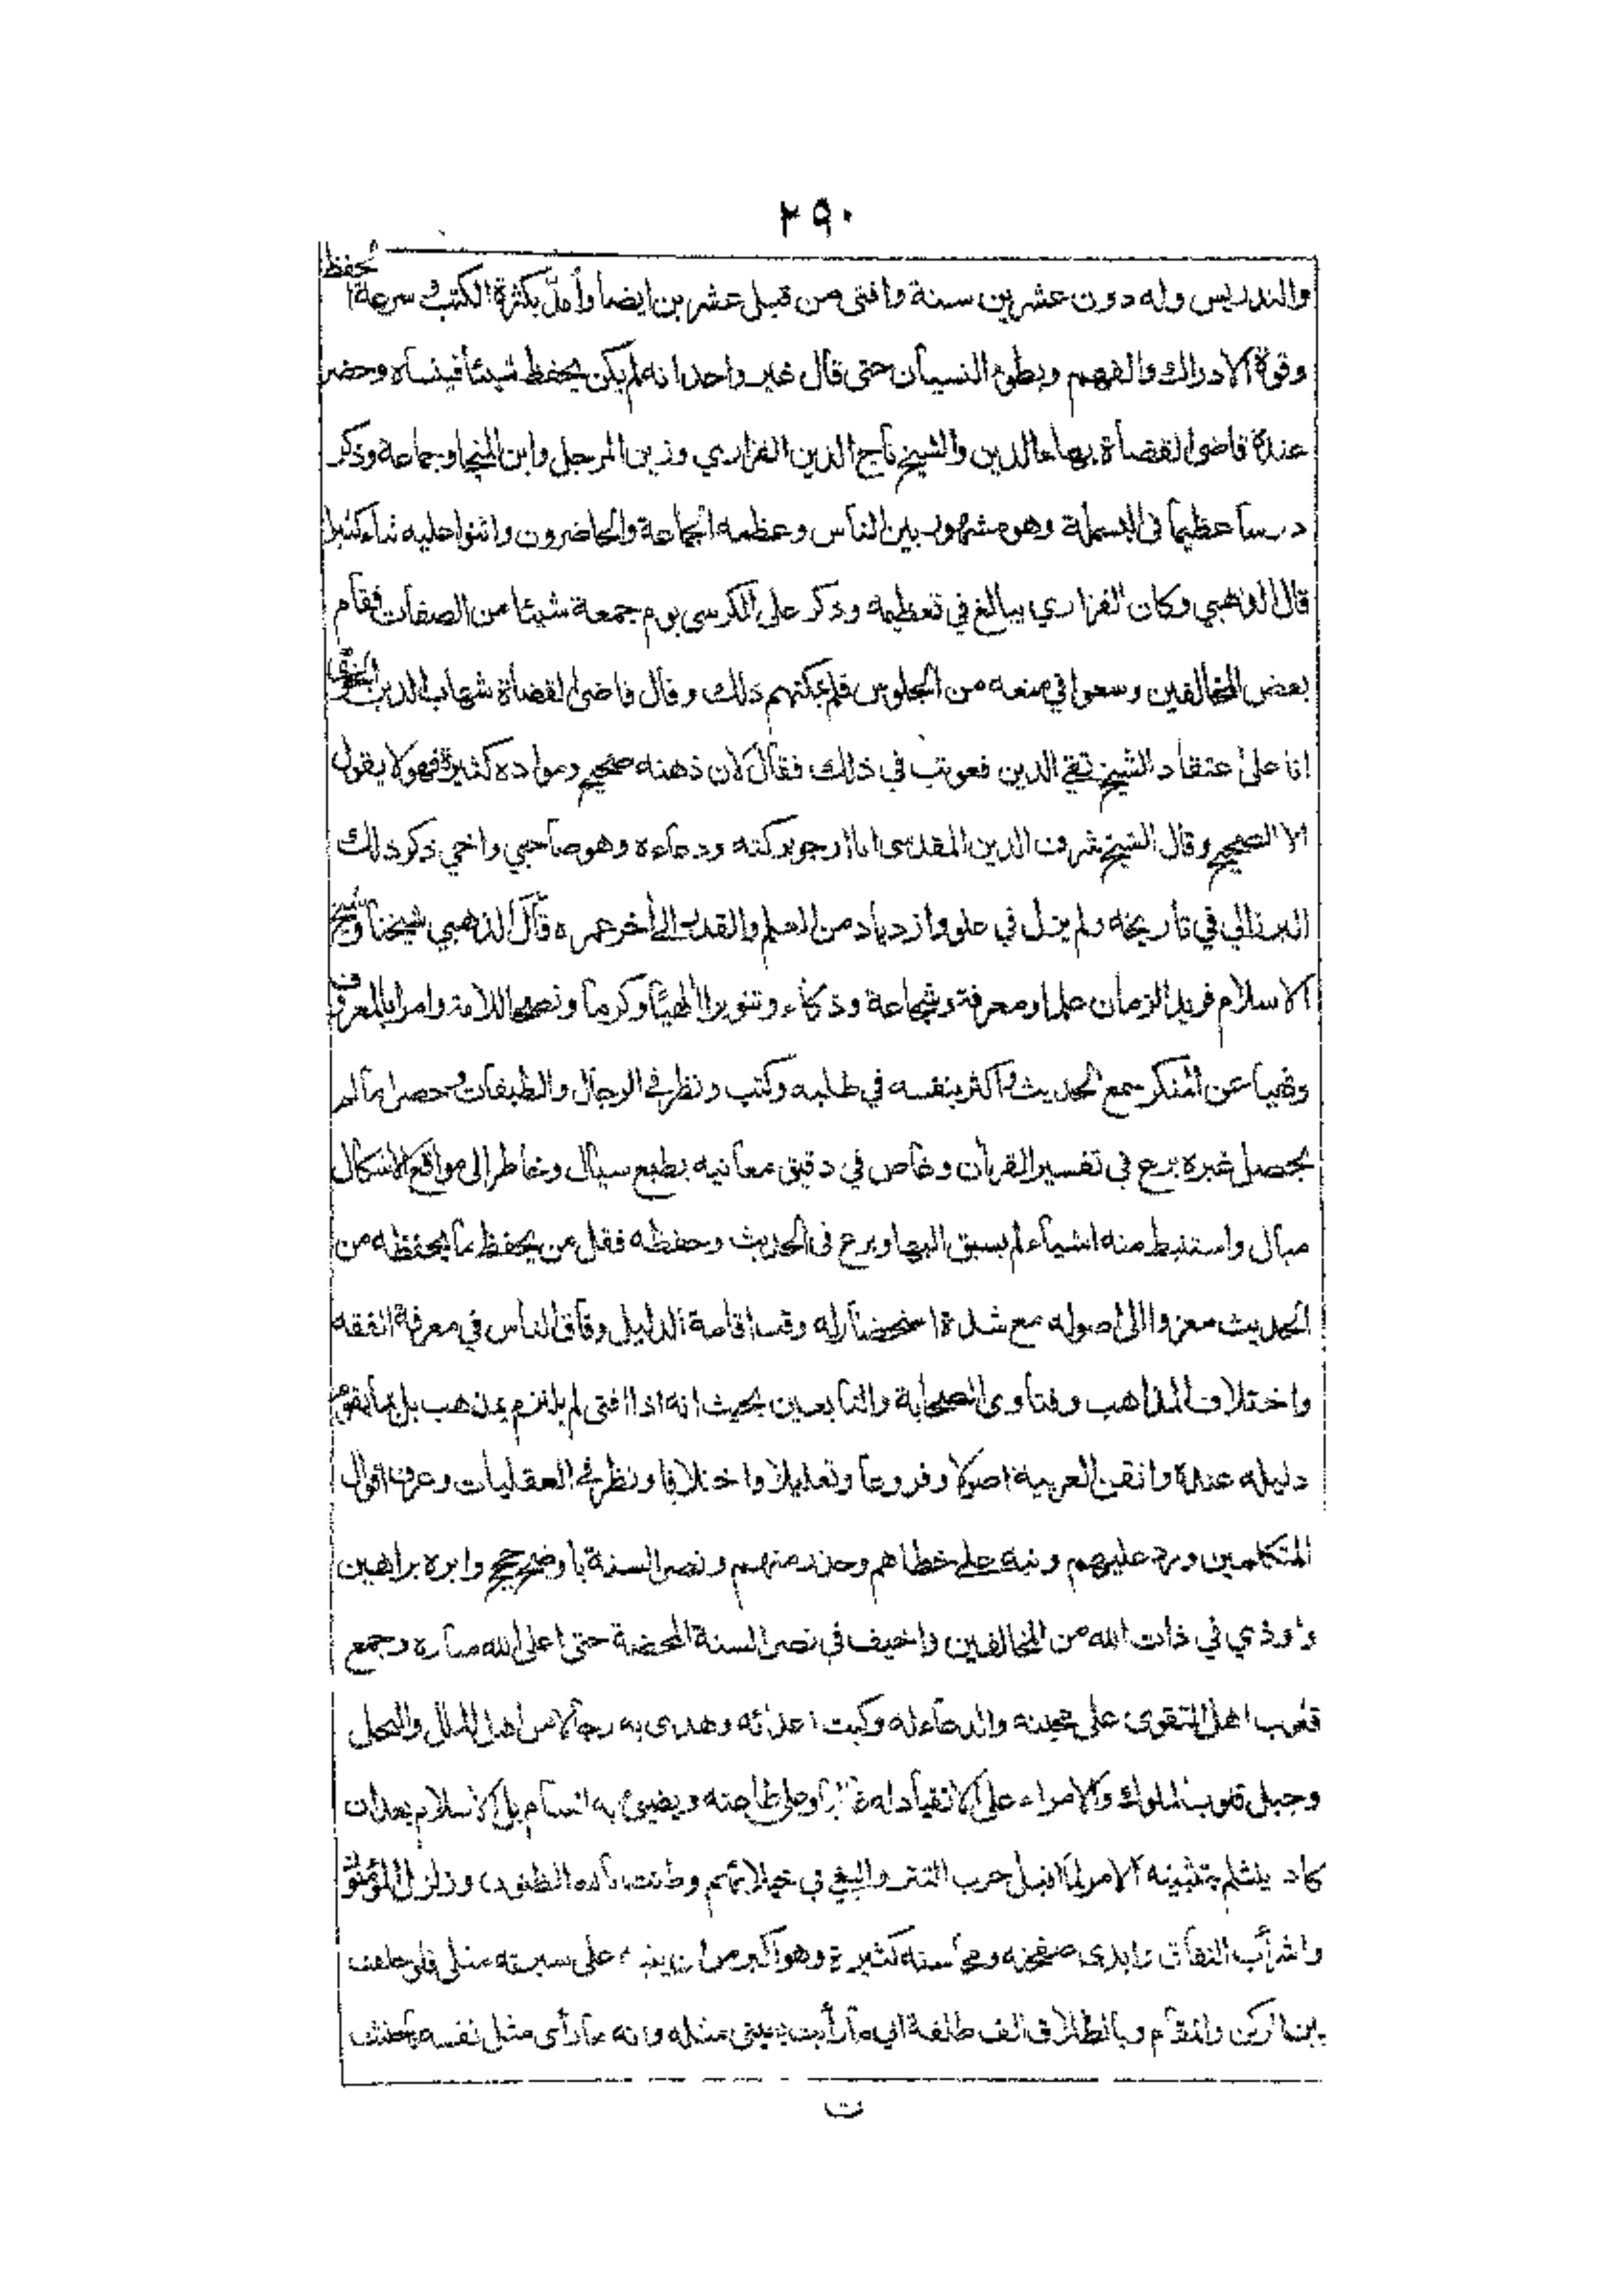 ٢٩٠
والتدريس وله دون عشرين سنة وافتى من قبل عشرين ايضا وأمدّ بكثرة الكتب وسرعة الحفظ
وقوة الادراك والفهم وبطئ النسيان حتى قال غير واحد انه لم يكن يحفظ شيئا فينساه وحضر
عنده قاضي القضاة بهاء الدين والشيخ تاج الدين الفزاري وزين المرجل وابن المنجا وجماعة وذكر
درسا عظيما في البسملة وهو مشهور بين الناس وعظمه الجماعة والحاضرون واثنوا عليه ثناء كثيرا
قال الذهبي وكان الفزاري يبالغ في تعظيمه وذكر على الكرسي يوم جمعة شيئا من الصفات فقام
بعض المخالفين وسعوا في منعه من الجلوس فلم يمكنهم ذلك وقال قاضي القضاة شهاب الدين الخوئي
انا على اعتقاد الشيخ تقي الدين فعوتب في ذلك فقال لان ذهنه صحيح ومواده كثيرة فهو لا يقول
الا الصحيح وقال الشيخ شرف الدين المقدسي انا ارجو بركته ودعاءه وهو صاحبي واخي ذكر ذلك
البرزالي في تاريخه ولم يزل في علو وازدياد من العلم والقدر الى أخر عمره قال الذهبي شيخنا وشيخ
الاسلام فريد الزمان علما ومعرفة وشجاعة وذكاء وتنويرا الهيا وكرما ونصحا للامة وامرا بالمعروف
ونهيا عن المنكر سمع الحديث واكثر بنفسه في طلبه وكتب ونظر في الرجال والطبقات وحصل ما لم
يحصل غيره برع في تفسير القرأن وغاص في دقيق معانيه بطبع سيال وخاطر الى مواقع الاشكال
ميال واستنبط منه اشياء لم يسبق اليها وبرع في الحديث وحفظه فقل من يحفظ ما يحفظه من
الحديث معزوا الى اصوله مع شدة استحضار له وقت اقامة الدليل وفاق الناس في معرفة الفقه
واختلاف المذاهب وفتاوى الصحابة والتابعين بحيث انه اذا افتى لم يلتزم بمذهب بل بما يقوم
دليله عنده واتقن العربية اصولا وفروعا وتعليلا واختلافا ونظر في العقليات وعرف اقوال
المتكلمين ورد عليهم ونبه على خطاهم وحذر منهم ونصر السنة باوضح حجج وابره براهين
واوذي في ذات الله من المخالفين واخيف في نصر السنة المحضة حتى اعلى الله مناره وجمع
قلوب اهل التقوى على محبته والدعاء له وكبت اعدائه وهدى به رجالا من اهل الملل والنحل
وجبل قلوب الملوك والامراء على الانقياد له غالبا وعلى طاعته به الشام بل الاسلام بعد ان
كاد ينثلم بتثبيته الامر لما اقبل حرب التتر والبغي في خيلائهم وظنت بالله الظنون وزلزل المؤمنون
واشرأب النفاق وابدى صفحته ومحاسنه كثيرة وهو اكبر من ان ينبه على سيرته مثلي فلو حلفت
بين الركن والمقام وبالطلاق الف طلقة اني ما رأيت بعيني مثله وانه ما رأى مثل نفسه
ت